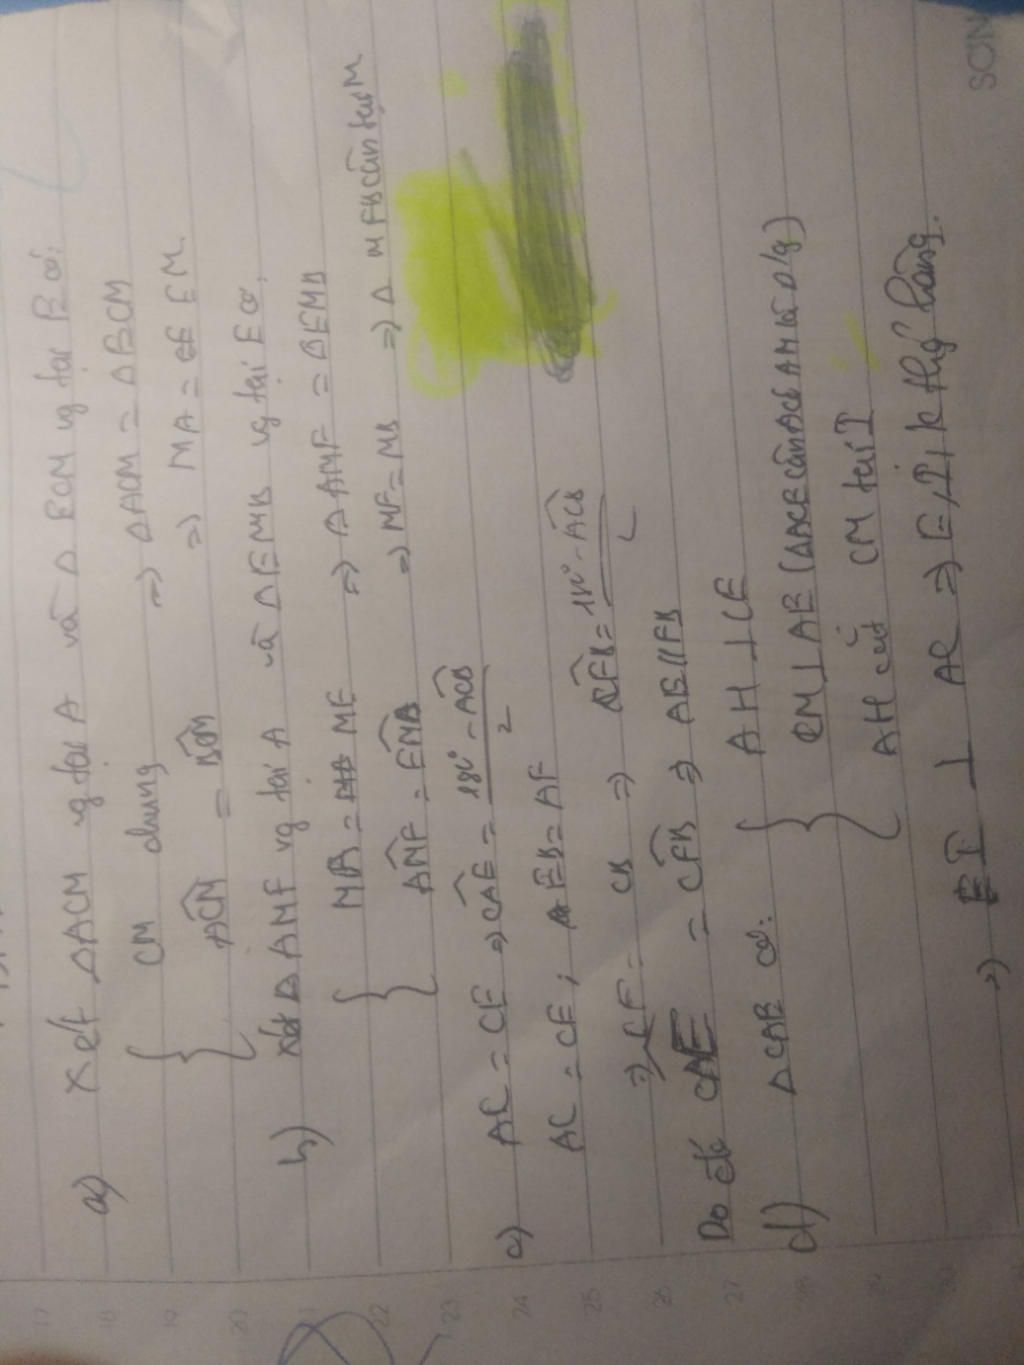 a) Xét ΔACM vg tại A và Δ ECM vg tại E có:
CM chung
ACM = ECM
=> ΔACM = ΔECM
=> MA = EM.
b) Xét Δ AMF vg tại A và Δ EMB vg tại E có:
MA = ME
AMF = EMB
=> Δ AMF = ΔEMB
=> MF = MB => Δ MFB cân tại M
c) AC = CE => CAE = 180° - ACB / 2
AC = CE ; EB = AF
=> CF = CB => CFB = 180° - ACB / 2
Do đó CAE = CFB => AE // FB
d) ΔCAE có: AH ⊥ CE
CM ⊥ AE (ΔACE cân
AH cắt CM tại I
=> EI ⊥ AC => E, I, K thẳng hàng.